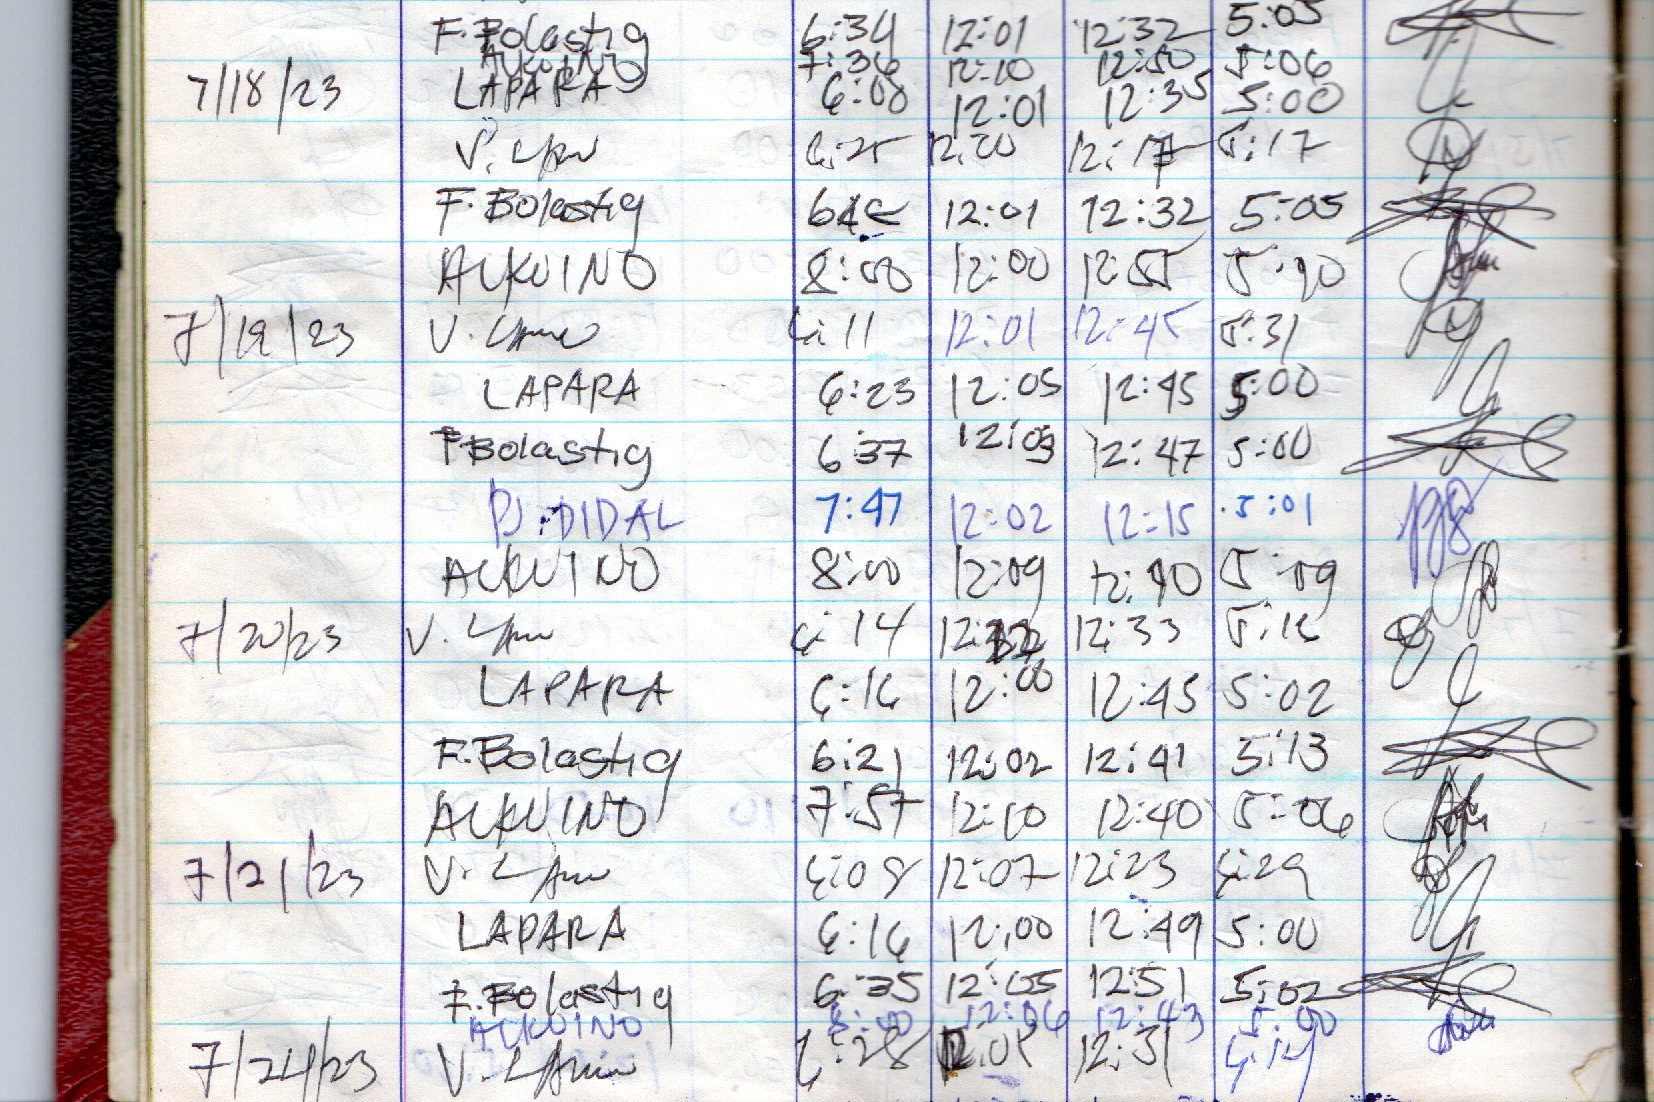 F. Bolastig 6:34 12:01 12:32 5:05
AUKUINO 7:36 12:10 12:50 5:06
7/18/23 LAPARA 6:08 12:01 12:35 5:00
V. 6:25 12:00 12:17 5:17
F. Bolastig 12:01 12:32 5:05
AUKUINO 8:00 12:00 12:55 5:
7/19/23 V. 6:11 12:01 12:45 5:31
LAPARA 6:23 12:05 12:45 5:00
F Bolastig 6:37 12:03 12:47 5:00
PJ. DIDAL 7:47 12:02 12:15 5:01
AUKUINO 8:00 12:09 12:40 5:09
7/20/23 V. 6:14 12: 12:33 5:16
LAPARA 6:16 12:00 12:45 5:02
F. Bolastig 6:21 12:02 12:41 5:13
AUKUINO 7:57 12:10 12:40 5:06
7/21/23 V. 6:08 12:07 12:23 6:29
LAPARA 6:16 12:00 12:49 5:00
F. Bolastig 6:35 12:05 12:51 5:02
AUKUINO 12:06 12:43
7/24/23 V. 6:28 12:01 12:31